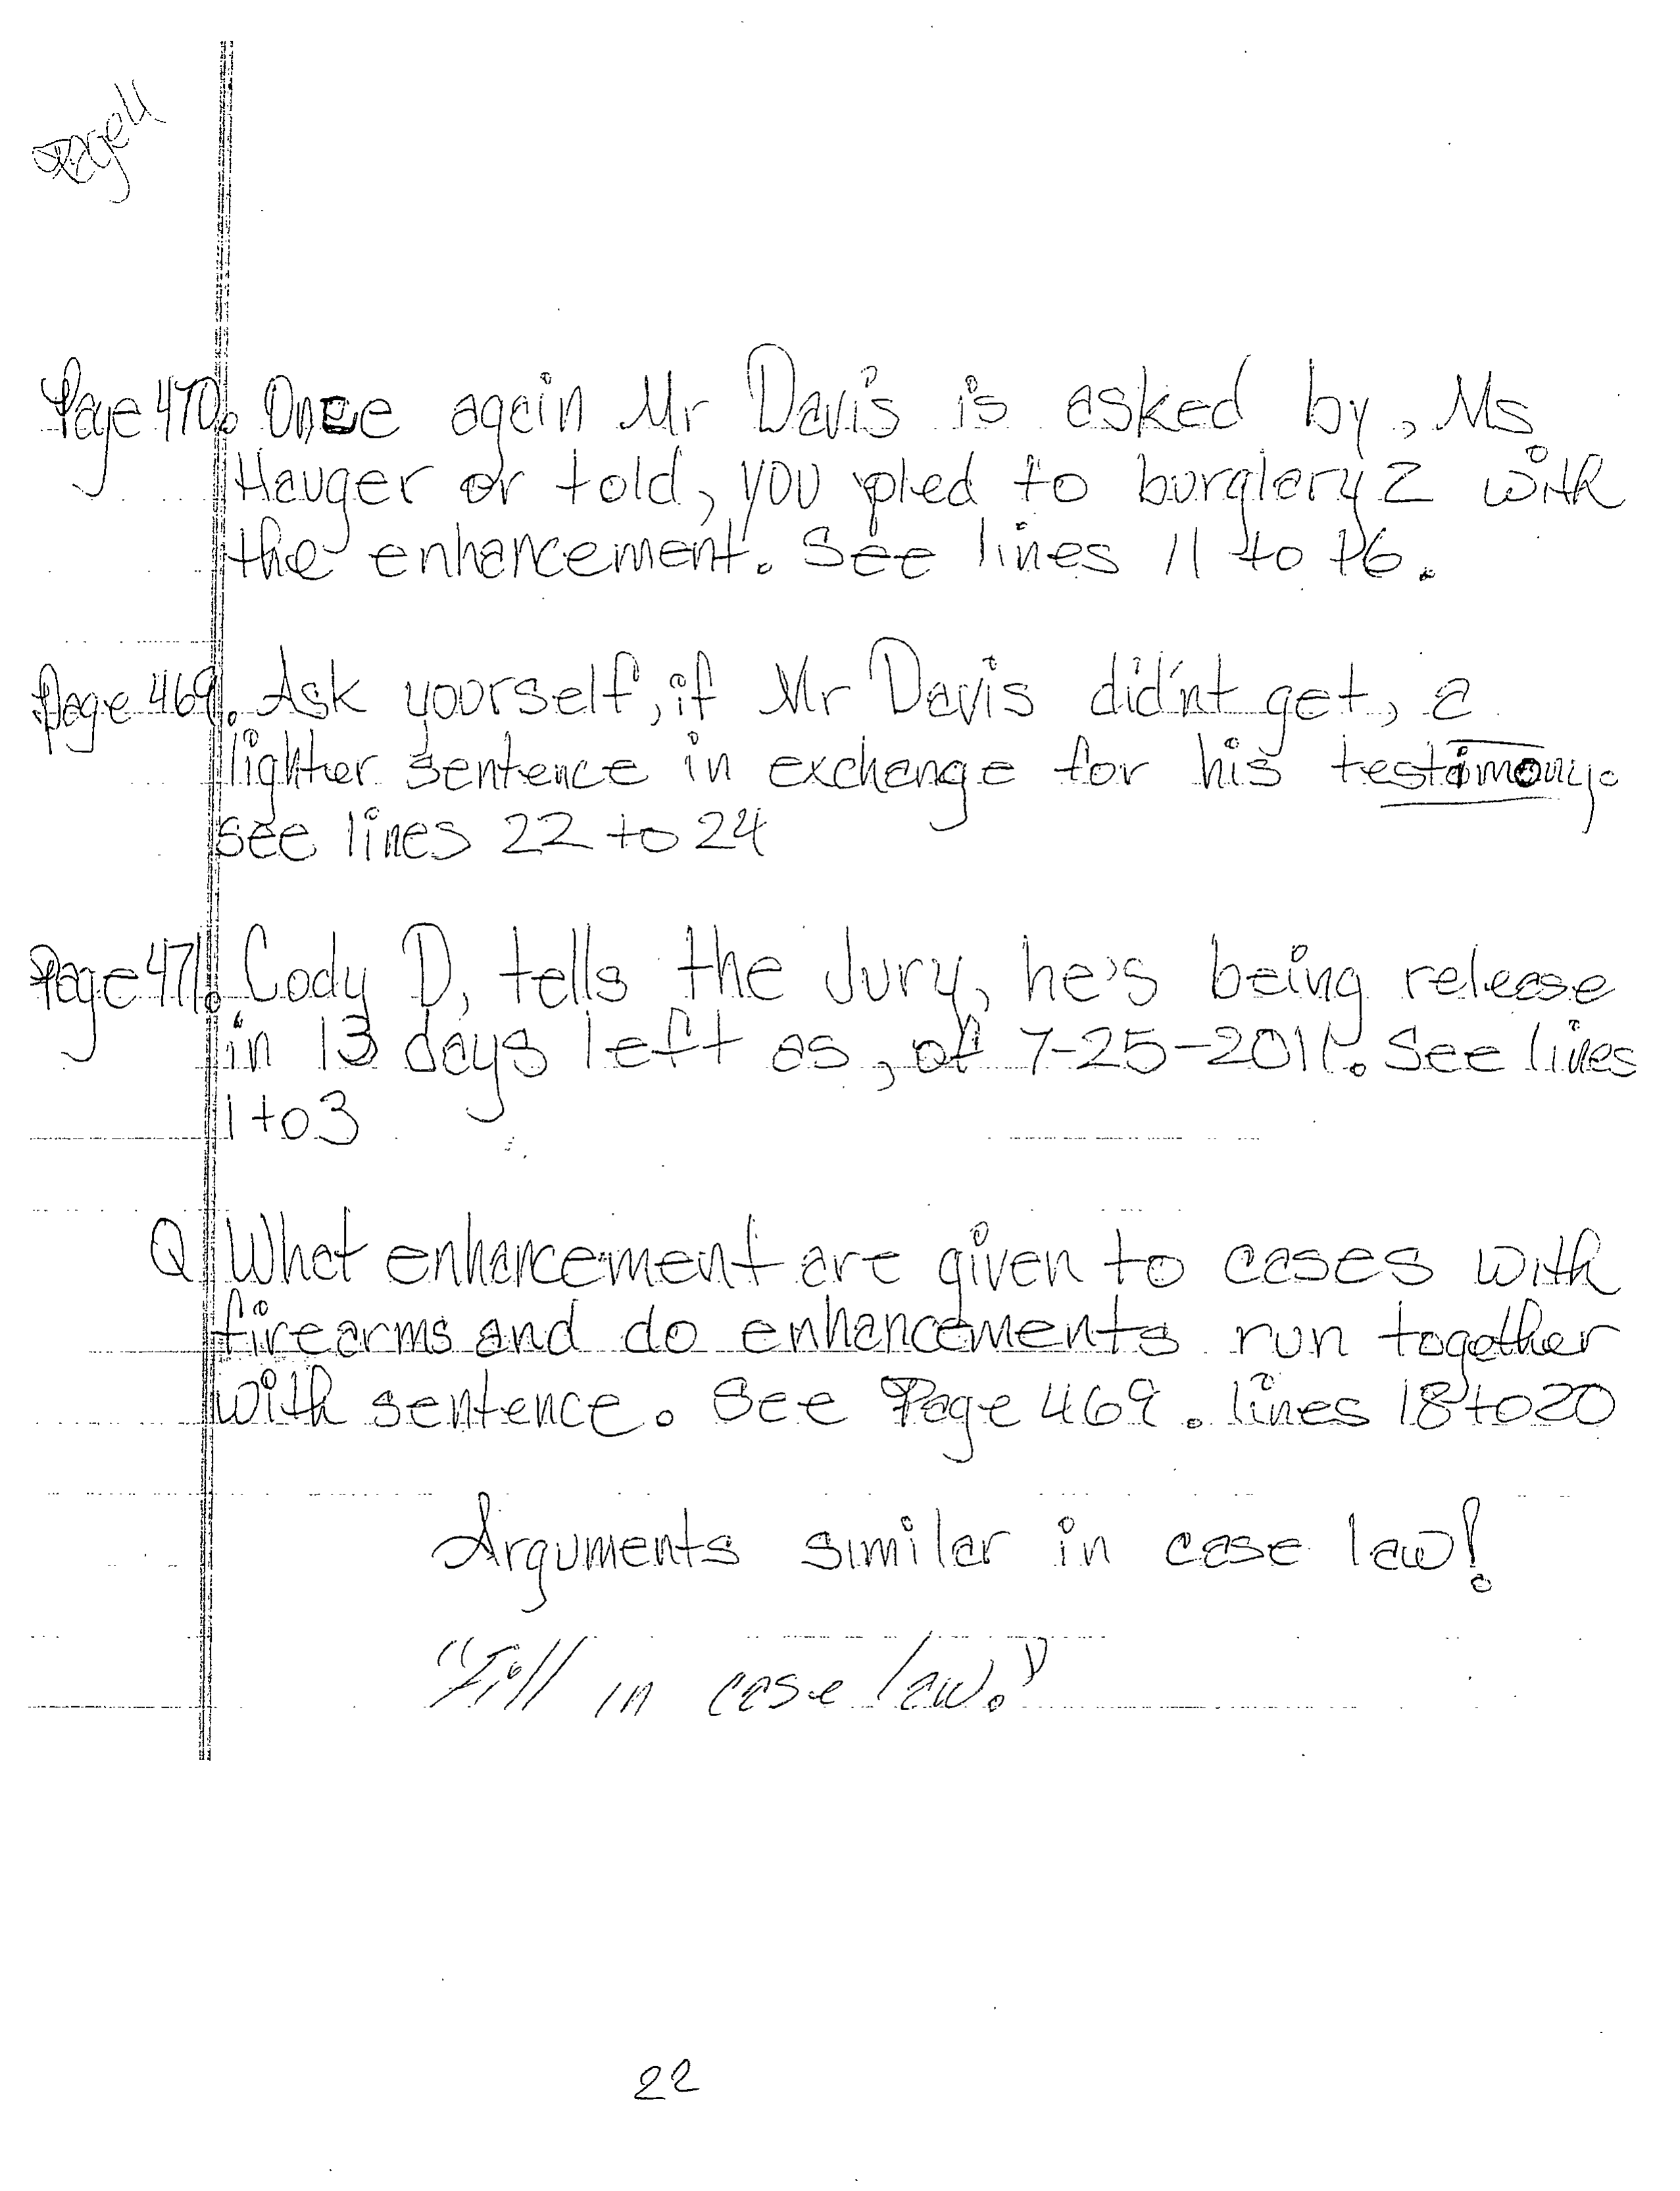 Page 4
Page 470. Once again Mr Davis is asked by, Ms
Hauger or told, you pled to burglery 2 with
the enhancement. See lines 11 to 16.
Page 469. Ask yourself, if Mr Davis did'nt get, a
lighter sentence in exchange for his testimony.
see lines 22 to 24
Page 471. Cody D, tells the Jury, he's being release
in 13 days left as, of 7-25-2011. See lines
1 to 3
Q What enhancement are given to cases with
firearms and do enhancements run together
with sentence. See Page 469. lines 18 to 20
Arguments similar in case law!
"Fill in case law."
22